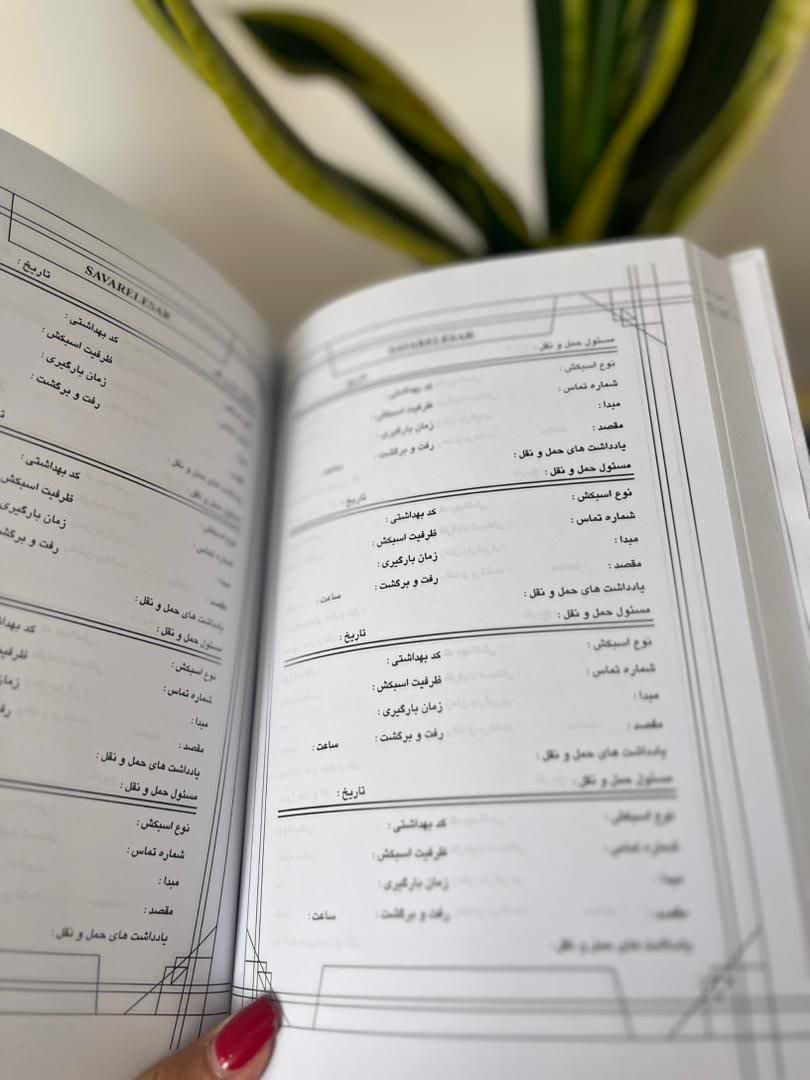 SAVARELESAR
مسئول حمل و نقل : تاریخ :
نوع اسبکش : کد بهداشتی :
شماره تماس : ظرفیت اسبکش :
مبدا : زمان بارگیری :
مقصد : رفت و برگشت : ساعت :
یادداشت های حمل و نقل :
مسئول حمل و نقل : تاریخ :
نوع اسبکش : کد بهداشتی :
شماره تماس : ظرفیت اسبکش :
مبدا : زمان بارگیری :
مقصد : رفت و برگشت : ساعت :
یادداشت های حمل و نقل :
مسئول حمل و نقل : تاریخ :
نوع اسبکش : کد بهداشتی :
شماره تماس : ظرفیت اسبکش :
مبدا : زمان بارگیری :
مقصد : رفت و برگشت : ساعت :
یادداشت های حمل و نقل :
مسئول حمل و نقل : تاریخ :
نوع اسبکش : کد بهداشتی :
شماره تماس : ظرفیت اسبکش :
مبدا : زمان بارگیری :
مقصد : رفت و برگشت : ساعت :
یادداشت های حمل و نقل :
SAVARELESAR
تاریخ :
کد بهداشتی :
ظرفیت اسبکش :
زمان بارگیری :
رفت و برگشت :
یادداشت های حمل و نقل :
مسئول حمل و نقل :
نوع اسبکش : کد بهداشتی :
شماره تماس : ظرفیت اسبکش
مبدا : زمان بارگیری
مقصد : رفت و برگشت
یادداشت های حمل و نقل :
مسئول حمل و نقل :
نوع اسبکش : کد بهداش
شماره تماس : ظرفی
مبدا : زمان
مقصد :
یادداشت های حمل و نقل :
مسئول حمل و نقل :
نوع اسبکش :
شماره تماس :
مبدا :
مقصد :
یادداشت های حمل و نقل :